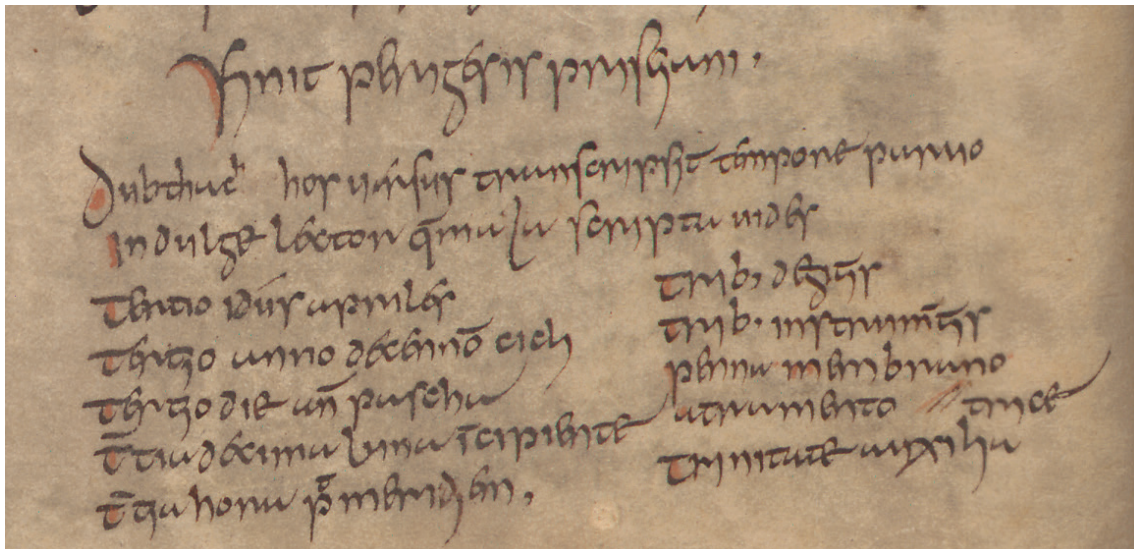 Finit periigesis prisciani.
Dubthach hos uersus transcripsit tempore paruo
Indulge lector q̄ mala scripta uides
Tertio idus apriles
Tertio anno decennō cicli
Tertio die añ pascha
T̄tia decima luna īcipiente
T̄tia hora p̊ meridiem,
Trib; degt̄is
Trib; instrum̄tis
penna menbrano
atramento // trice
Trinitate auxilia